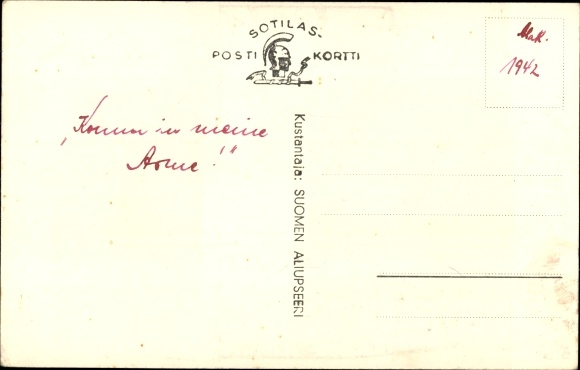 SOTILAS-
POSTI KORTTI
1942
„Komm in meine
Arme!"
Kustantaja: SUOMEN ALIUPSEERI